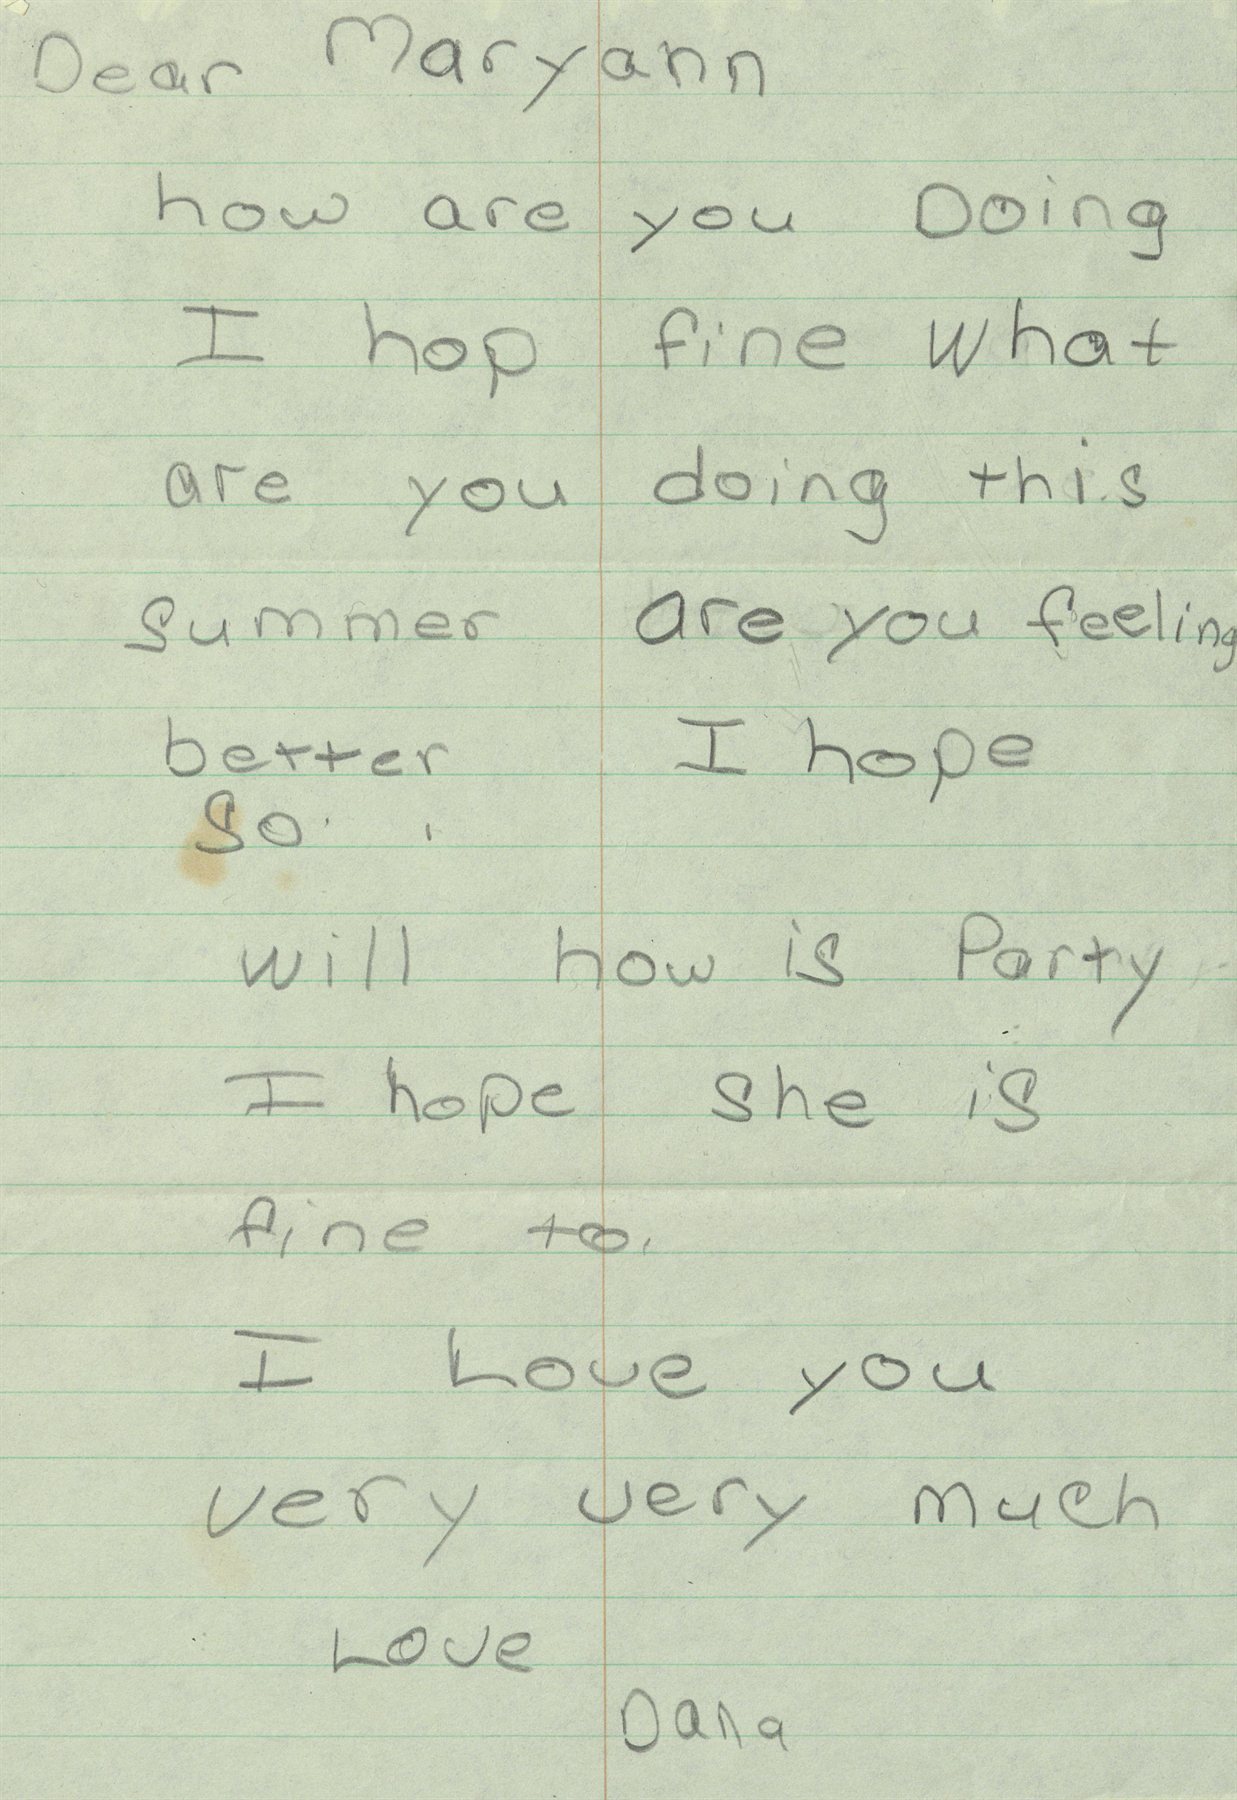 Dear Maryann
how are you Doing
I hop fine What
are you doing this
summer are you feeling
better I hope
so.
will how is Party
I hope she is
fine to.
I Love you
very very much
Love
Dana